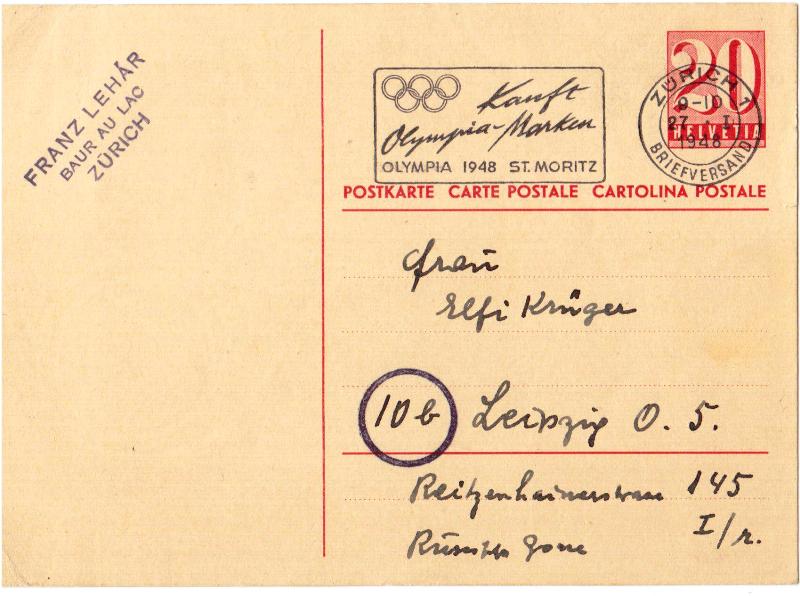 FRANZ LEHÁR
BAUR AU LAC
ZÜRICH
Kauft
Olympia-Marken
OLYMPIA 1948 ST. MORITZ
20
HELVETIA
ZÜRICH 1
9-10
27. I.
1948
BRIEFVERSAND
POSTKARTE CARTE POSTALE CARTOLINA POSTALE
Frau
Elfi Krüger
10b Leipzig O. 5.
Reitzenhainerstrasse 145
I/r.
Russische Zone